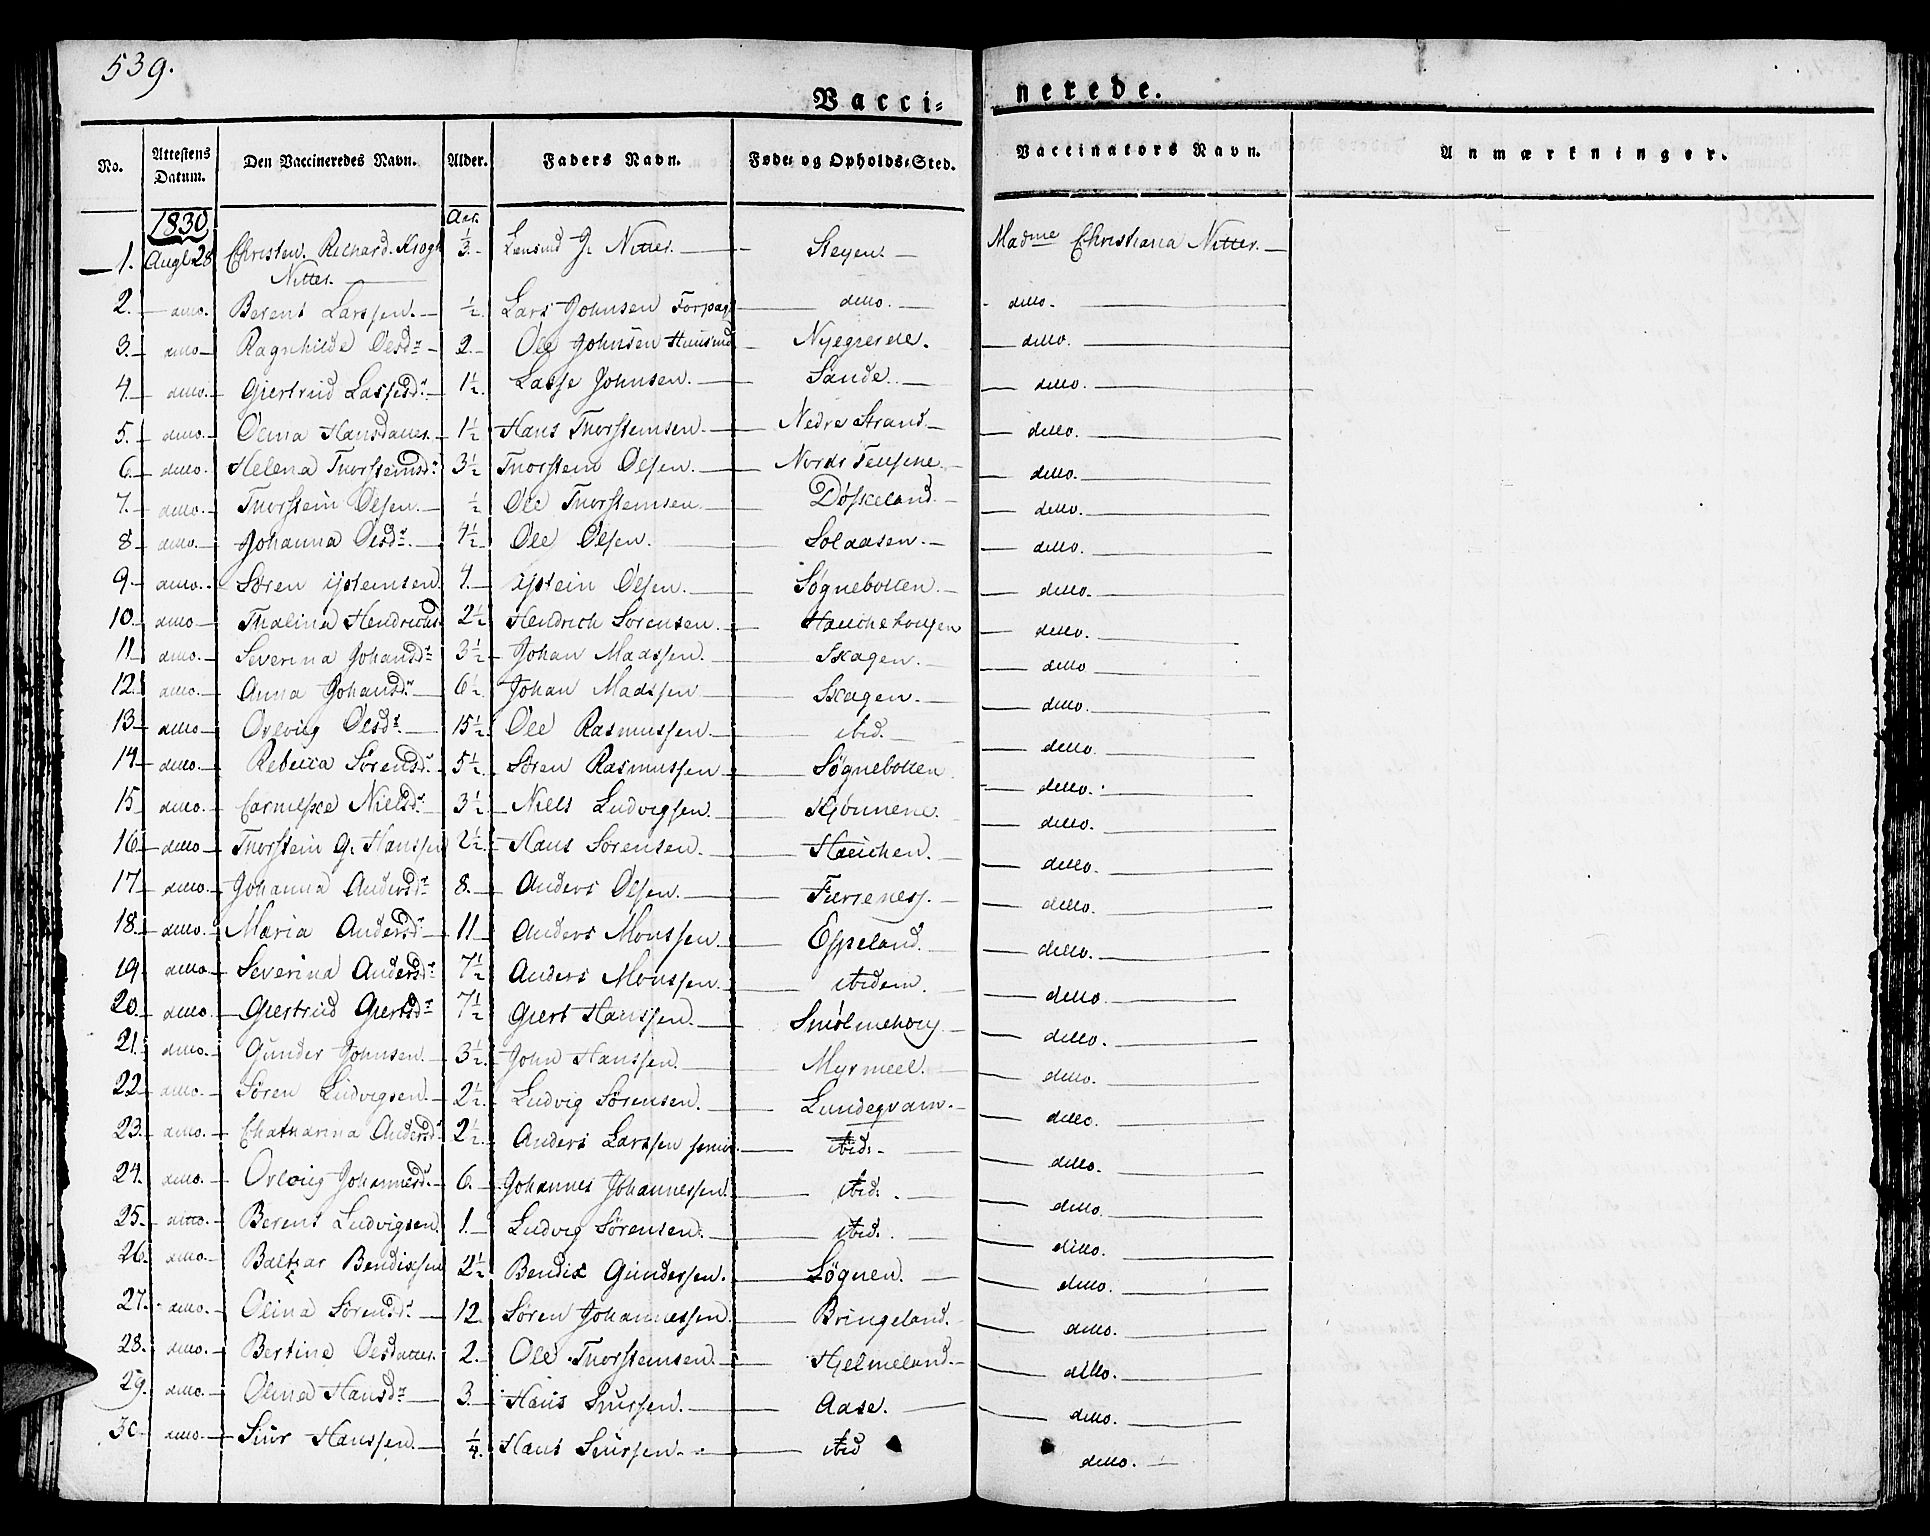 539.
Vacci- nerede.
No. Attestens Datum. Den Vaccineredes Navn. Alder. Faders Navn. Føde- og Opholds-Sted. Vaccinators Navn. Anmærkninger.
1830 Aar.
1. Augt 28 Christen Richard Krogh 1/3 G. Nitter. Steyen. Madme Christiana Nitter.
Nitter.
2. ditto. Berent Larssen. 1/2 Lars Johnsen ditto. ditto.
3. ditto Ragnhilde Olsdr 2. Ole Johnsen Nyegierde. ditto.
4. ditto. Giertrud Lassesdr. 1 1/2 Lasse Johnsen. Sande. ditto.
5. ditto. Olina Hansdatter. 1 1/2 Hans Thorsteinsen. Nedre Strand ditto.
6. ditto. Helena Thorsteinsdr 3 1/2 Thorstein Olsen. Nordr ditto.
7. ditto. Thorstein Olsen. 1/2 Ole Thorsteinsen Døskeland. ditto.
8 ditto. Johanna Olsdr. 4 1/2 Ole Olsen. Solaasen. ditto.
9 ditto. Søren Ysteinsen 4. Ystein Olsen. Søgnebotten. ditto.
10. ditto Thalina Hendrichsd 2 1/2 Hendrich Sørensen. ditto.
11 ditto. Severina Johansdr 3 1/2 Johan Madssen. Skagen. ditto
12. ditto. Anna Johansdr 6 1/2 Johan Madssen Skagen. ditto.
13 ditto. Orloug Olsdr. 15 1/2 Ole Rasmussen. ibid. ditto.
14 ditto. Rebecca Sørensdr. 5 1/2 Søren Rasmussen Søgnebotten ditto.
15 ditto. Carnilske Nielsdr. 3 1/2 Niels Ludvigsen. ditto.
16. ditto Thorstein G. Hanssen 2 1/2 Hans Sørensen. Hauchen. ditto.
17 ditto. Johanna Andersdr. 8. Anders Olsen. Furrenes. ditto.
18. ditto. Maria Andersdr. 11 Anders Monssen Espeland. ditto.
19. ditto. Severina Andersdr 7 1/2 Anders Monssen. ibidem. ditto.
20. ditto. Giertrud Giertsdr 7 1/2 Giert Hanssen. ditto.
21. ditto. Gunder Johnsen. 3 1/2 John Hanssen. Myrmeel. ditto.
22 ditto. Søren Ludvigsen. 2 1/2 Ludvig Sørensen. Lundeqvam. ditto.
23. ditto. Chatharina Andersdr 2 1/2 Anders Larssen senior ibid. ditto.
24. ditto. Orloug Johannesdr. 6. Johannes Johannessen ibid. ditto.
25. ditto. Berent Ludvigsen. 1. Ludvig Sørensen. ibid. ditto.
26. ditto. Baltzar Bendixsen 2 1/2 Bendix Gundersen. Søgnen. ditto.
27. ditto. Olina Sørensdr 12 Søren Johannessen. Bringeland. ditto.
28. ditto. Bertine Olsdatter. 2. Ole Thorsteinsen. Hjelmeland. ditto.
29. ditto. Olina Hansdr 3. Hans Siursen. Aase. ditto.
30. ditto. Siur Hanssen. 1/4. Hans Siursen. ibid ditto.